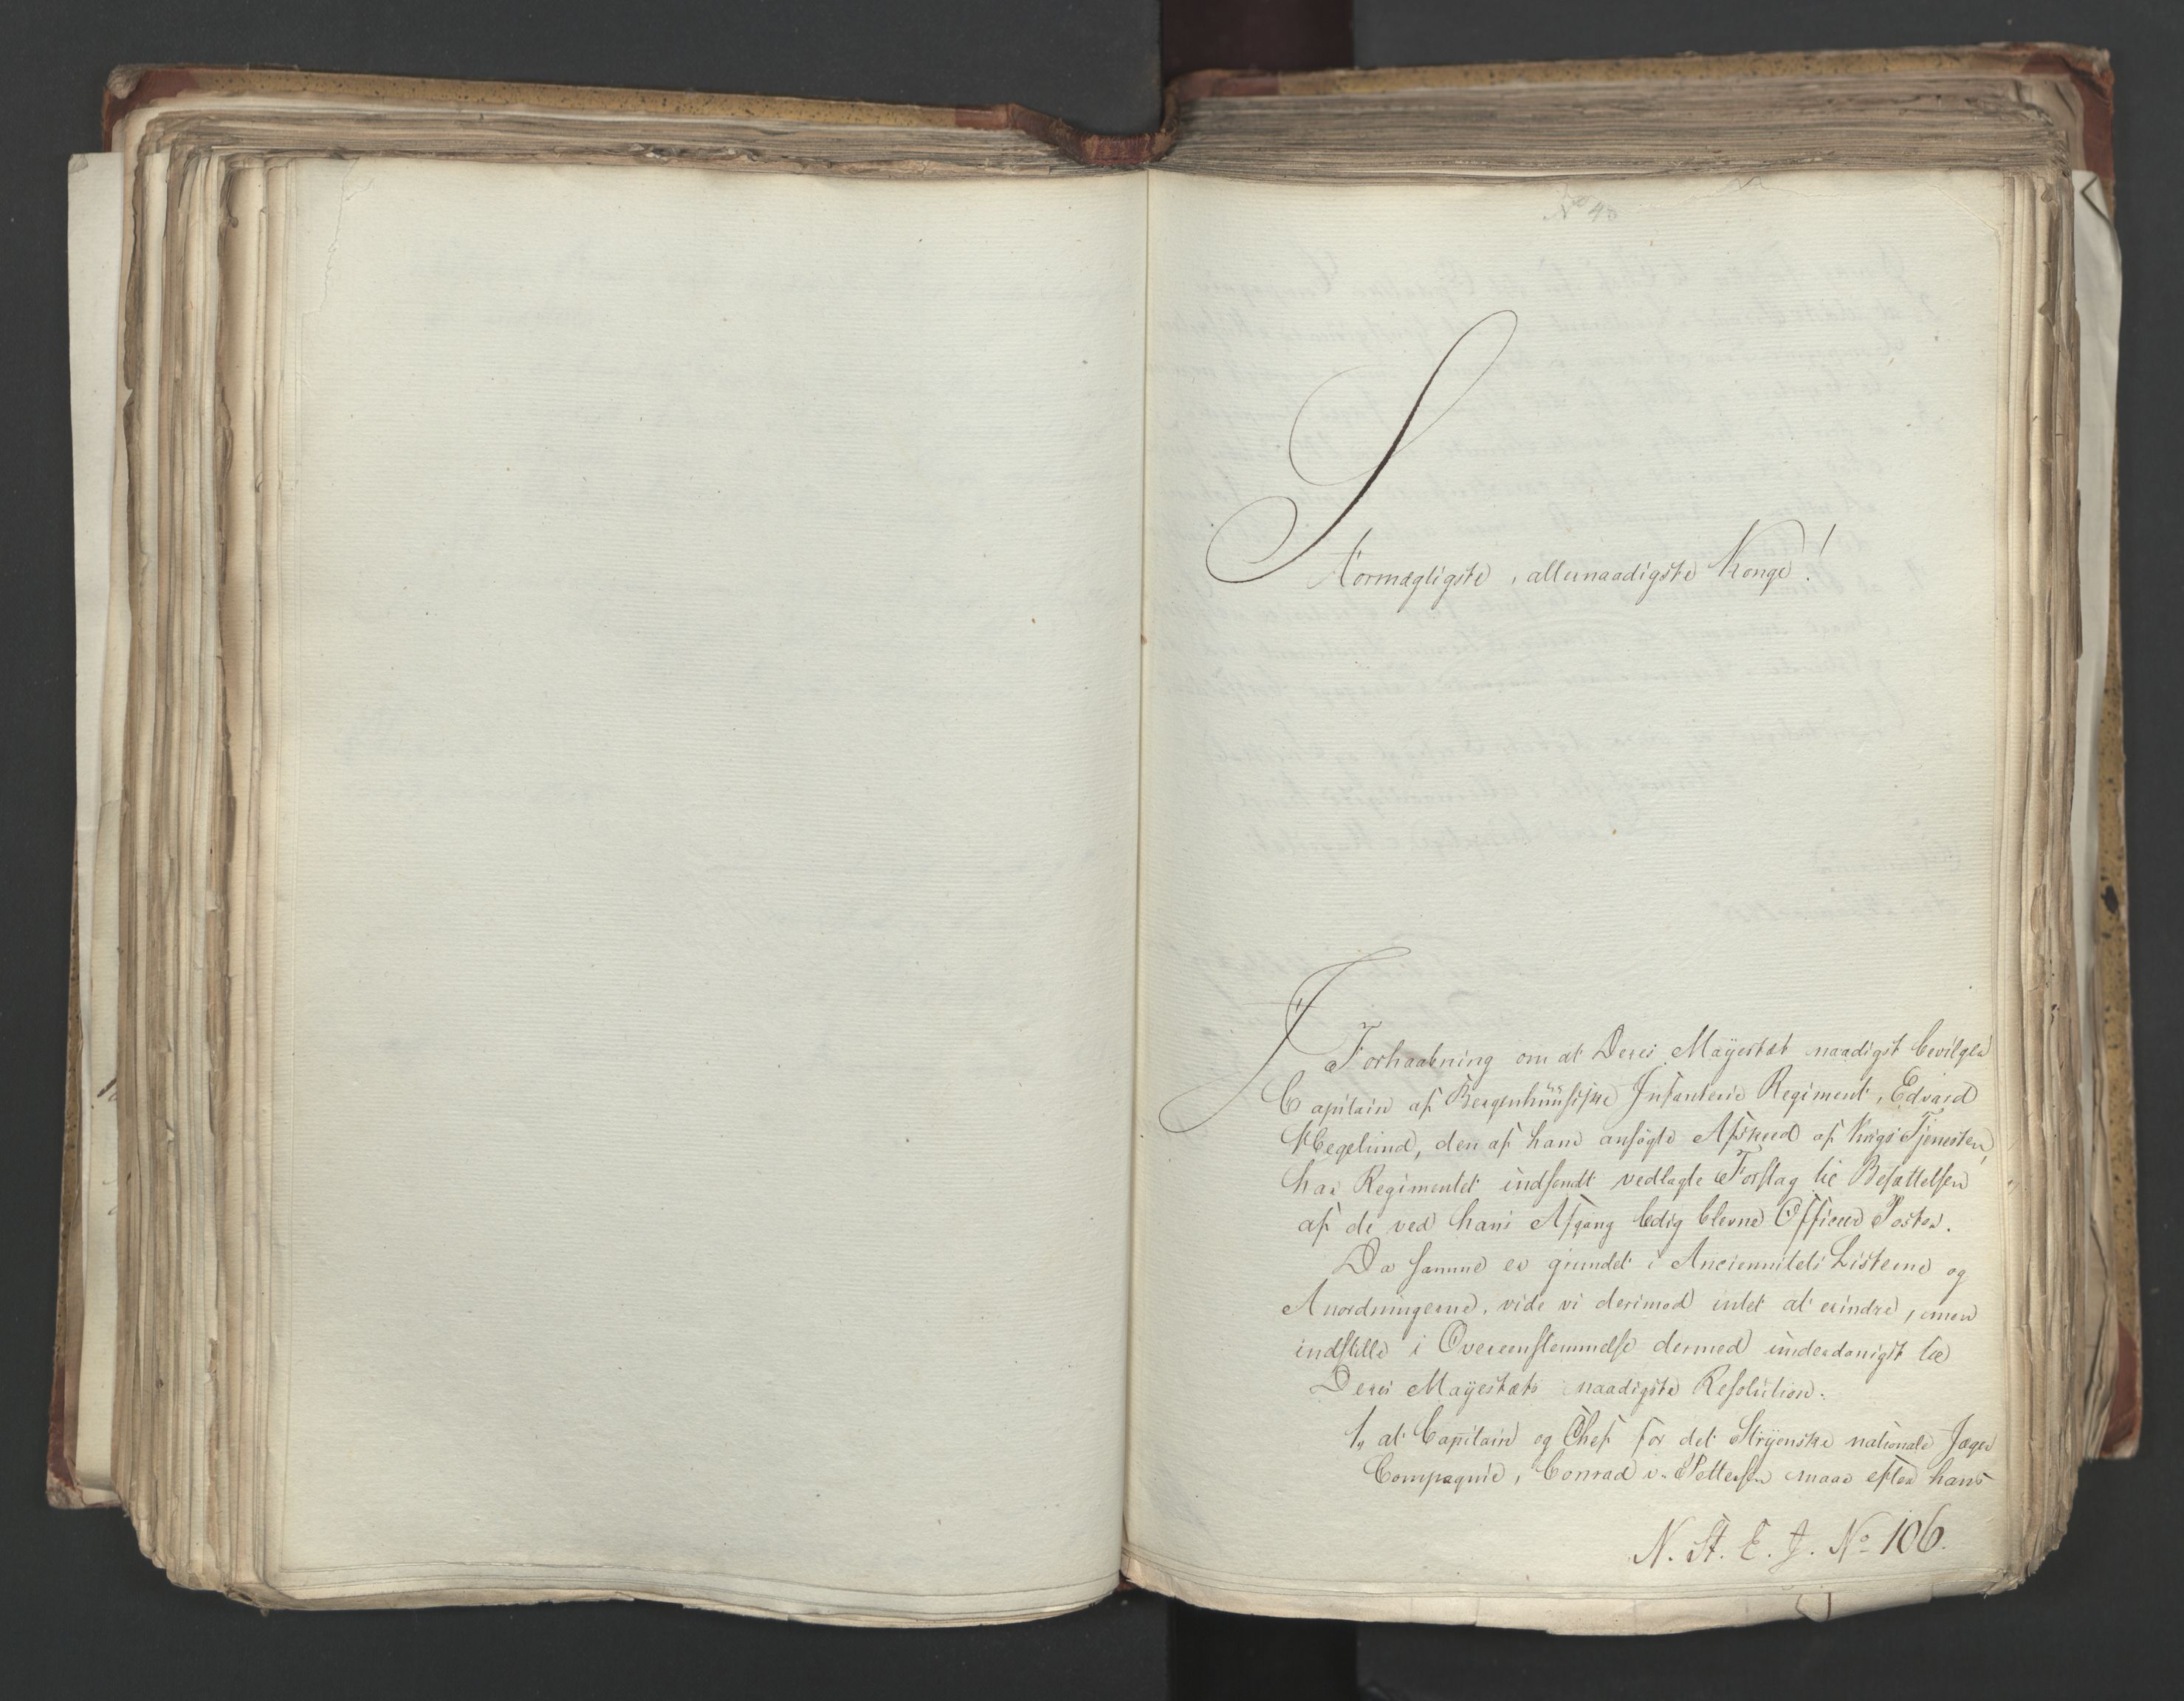 No 43
Stormægtigste, allernaadigste Konge!
I Forhaabning om at Deres Mayestæt naadigst bevilger
Capitain af Bergenhuusiske Infanterie Regiment, Edvard
Hegelund, den af ham ansøgte Afskeed af Krigs Tjenesten,
har Regimentet indsendt vedlagte Forslag til Besættelsen
af de ved hans Afgang ledig blevne Officeer Poster.
Da samme er grundet i Anciennitets Listerne og
Anordningerne, vide vi derimod intet at erindre, men
indstille i Overeenstemmelse dermed underdanigst til
Deres Mayestæts naadigste Resolution.
1, at Capitain og Chef for det Stryenske nationale Jæger
Compagnie, Conrad v. Pettersen maae efter hans
N. St. E. J. No 106.